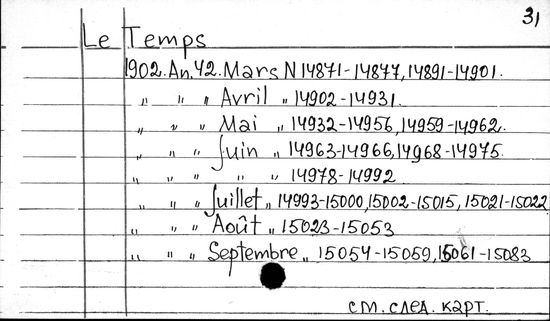 31
Le Temps
1902. An. 42. Mars N 14871-14877, 14891-14901.
" " " Avril " 14902-14931.
" " " Mai " 14932-14956, 14959-14962.
" " " Juin " 14963-14966, 14968-14975.
" " " " " 14978-14992
" " " Juillet " 14993-15000, 15002-15015, 15021-15022
" " " Août " 15023-15053
" " " Septembre " 15054-15059, 15061-15083
см. след. карт.